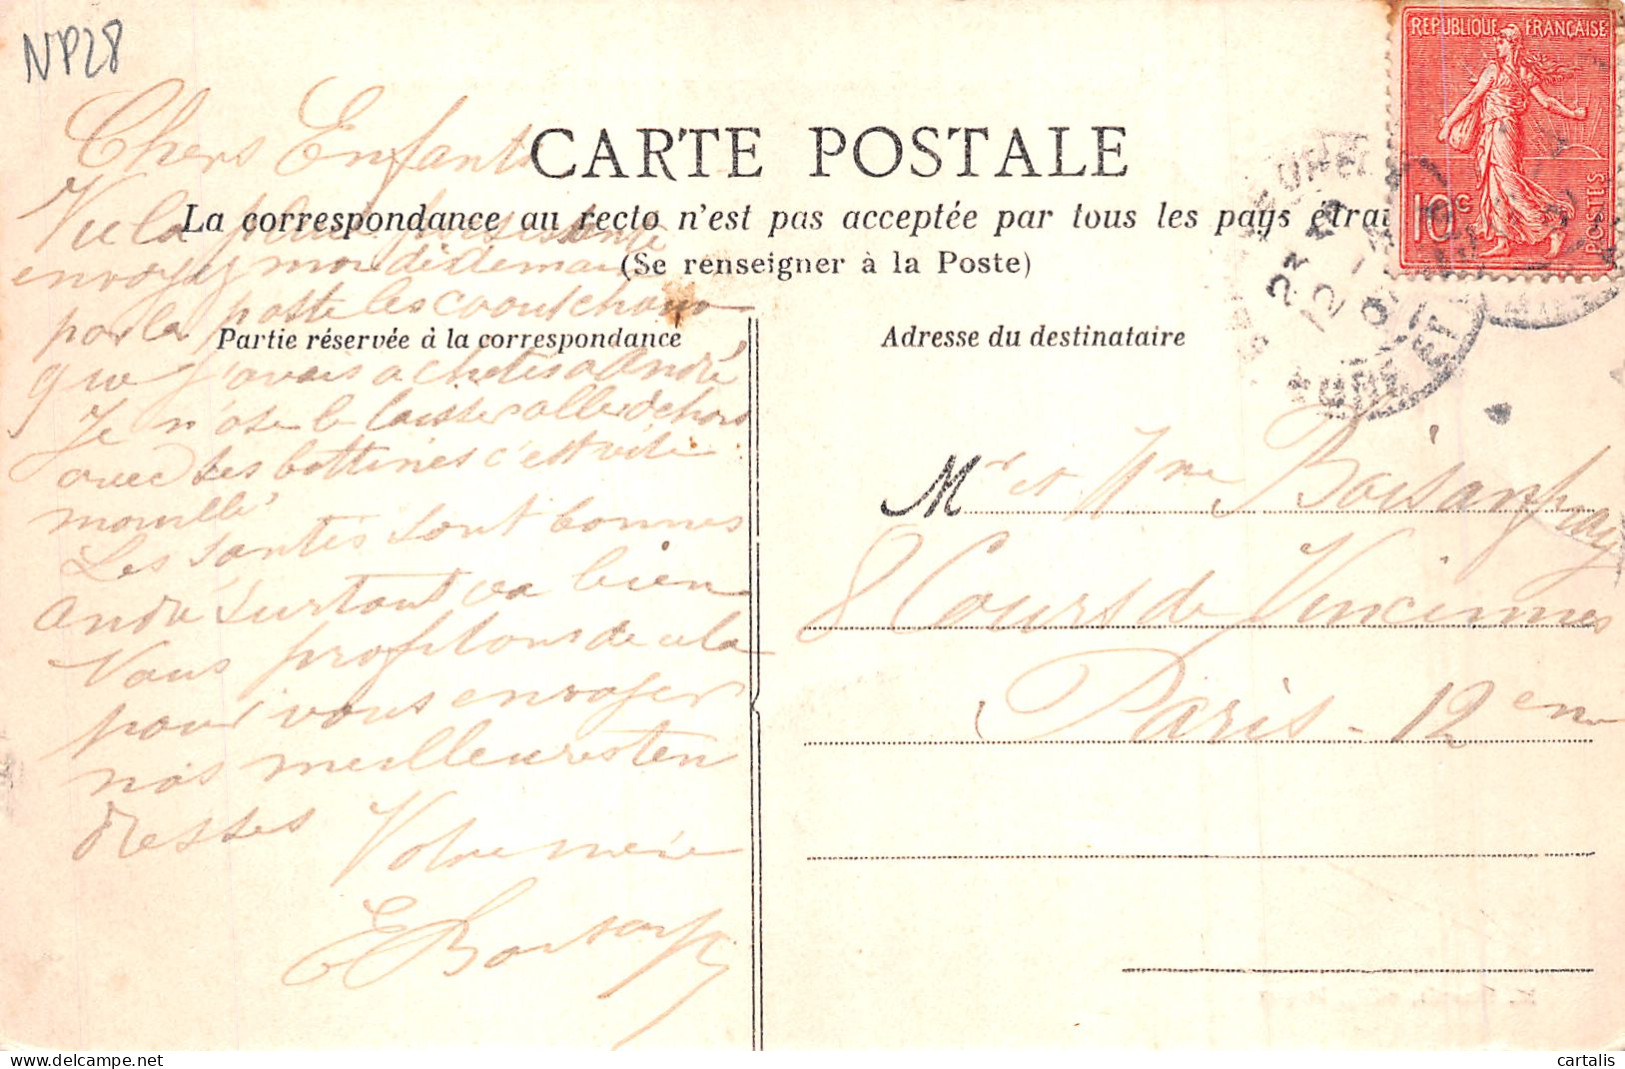 NP28
REPUBLIQUE FRANÇAISE
10c
POSTES
CARTE POSTALE
La correspondance au recto n'est pas acceptée par tous les pays étra
(Se renseigner à la Poste)
Partie réservée à la correspondance
Adresse du destinataire
Chers Enfants
Vu la pluie
envoyez moi dès demain
par la poste les caoutchouc
que j'avais acheté à André
Je n'ose le laisser aller dehors
avec ses bottines c'est vite
mouillé
Les santés sont bonnes
André surtout va bien
Nous profitons de cela
pour vous envoyer
nos meilleures ten
dresses
Votre mère
E
Mr et Mme
8 Cours de Vincennes
Paris - 12 eme
cartalis
Delcampe.net